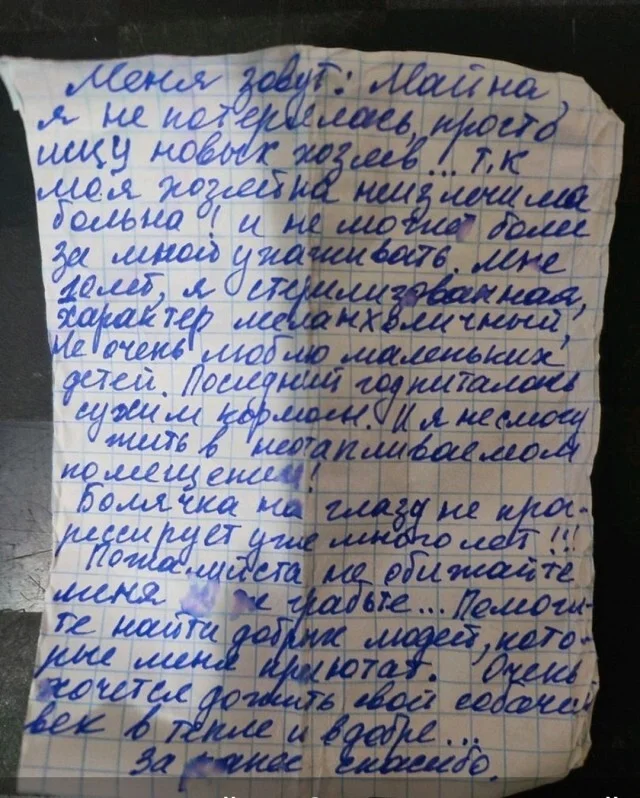 Меня зовут: Майна,
я не потерялась, просто
ищу новых хозяев... т.к
моя хозяйка неизлечима
больна! и не может более
за мной ухаживать. мне
10 лет, я стерилизованная,
характер меланхоличный,
не очень люблю маленьких
детей. Последний год питалась
сухим кормом. И я не смогу
жить в неотапливаемом
помещении!
Болячка на глазу не прог-
рессирует уже много лет!!!
Пожалуйста не обижайте
меня грабьте... Помоги-
те найти добрых людей, кото-
рые меня приютят. Очень
хочется дожить свой собачий
век в тепле и в добре...
За ранее спасибо.